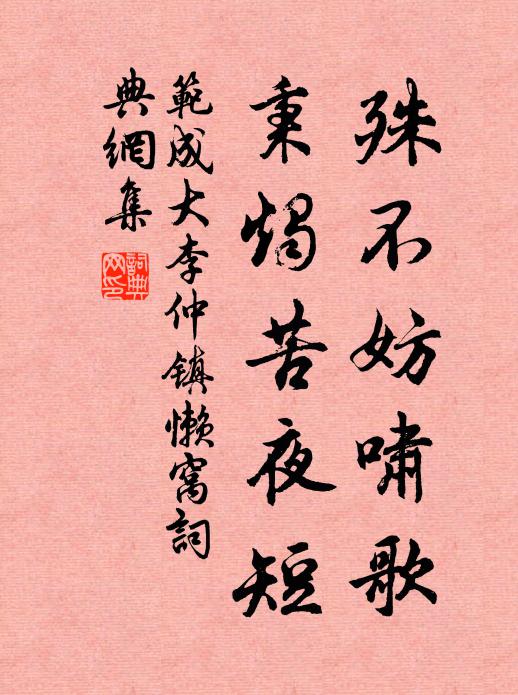 殊不妨嘯歌
秉燭苦夜短
範成大李仲鎮懶窩詞
典網集
詞典網印